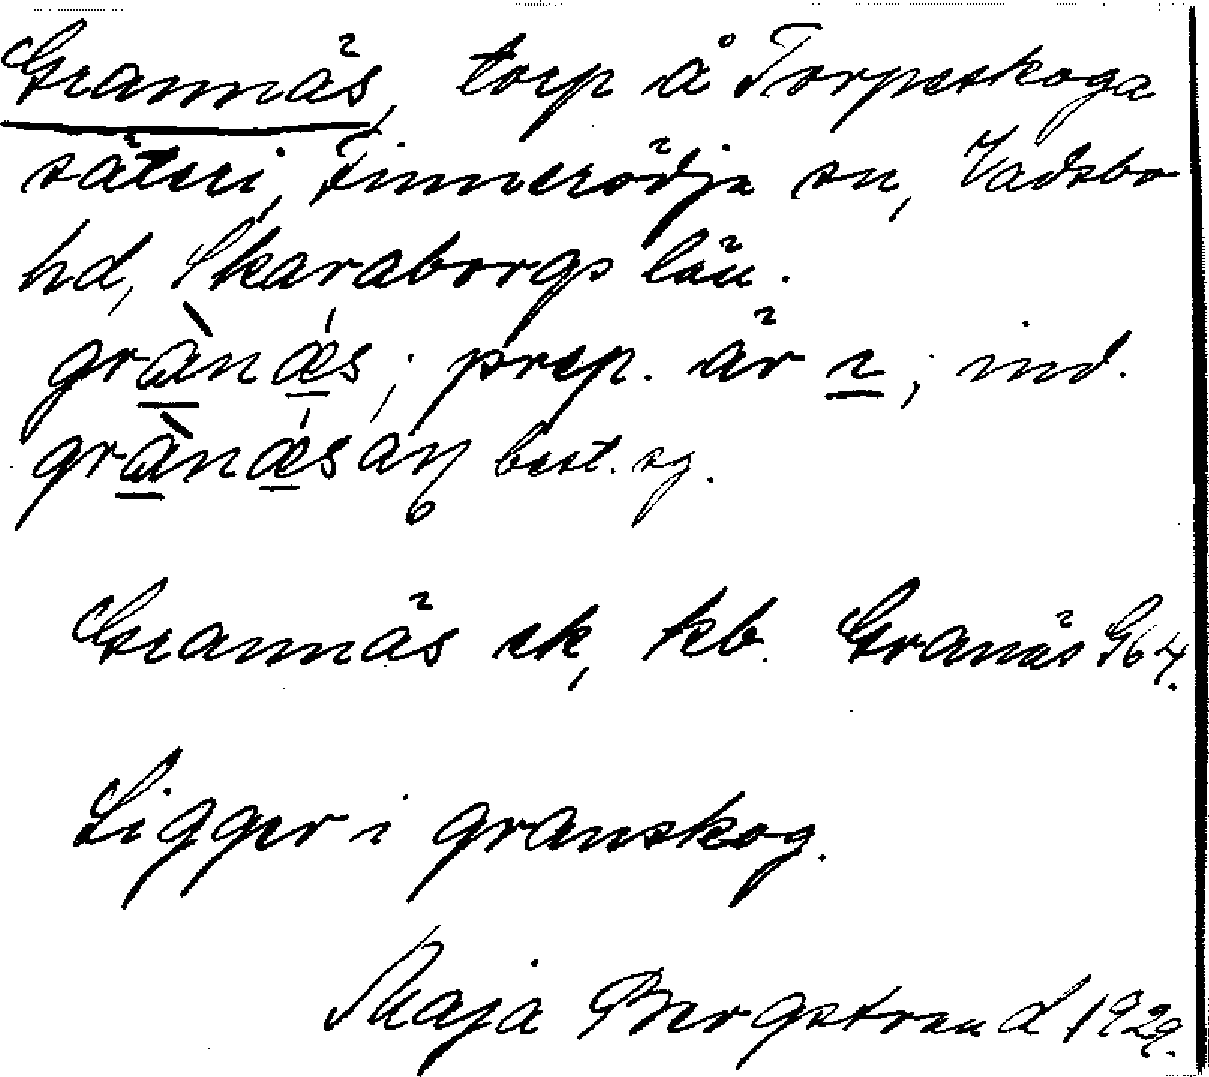 Grannäs, torp å Torpeskoga
säteri, Finnerödja sn, Vadsbo
hd, Skaraborgs län.
grànǽs; prep. är i; ind.
grànǽsaņ best. sg.
Grannäs ek, kb. Granäs G64.
Ligger i granskog.
Maja Bergstrand 1929.